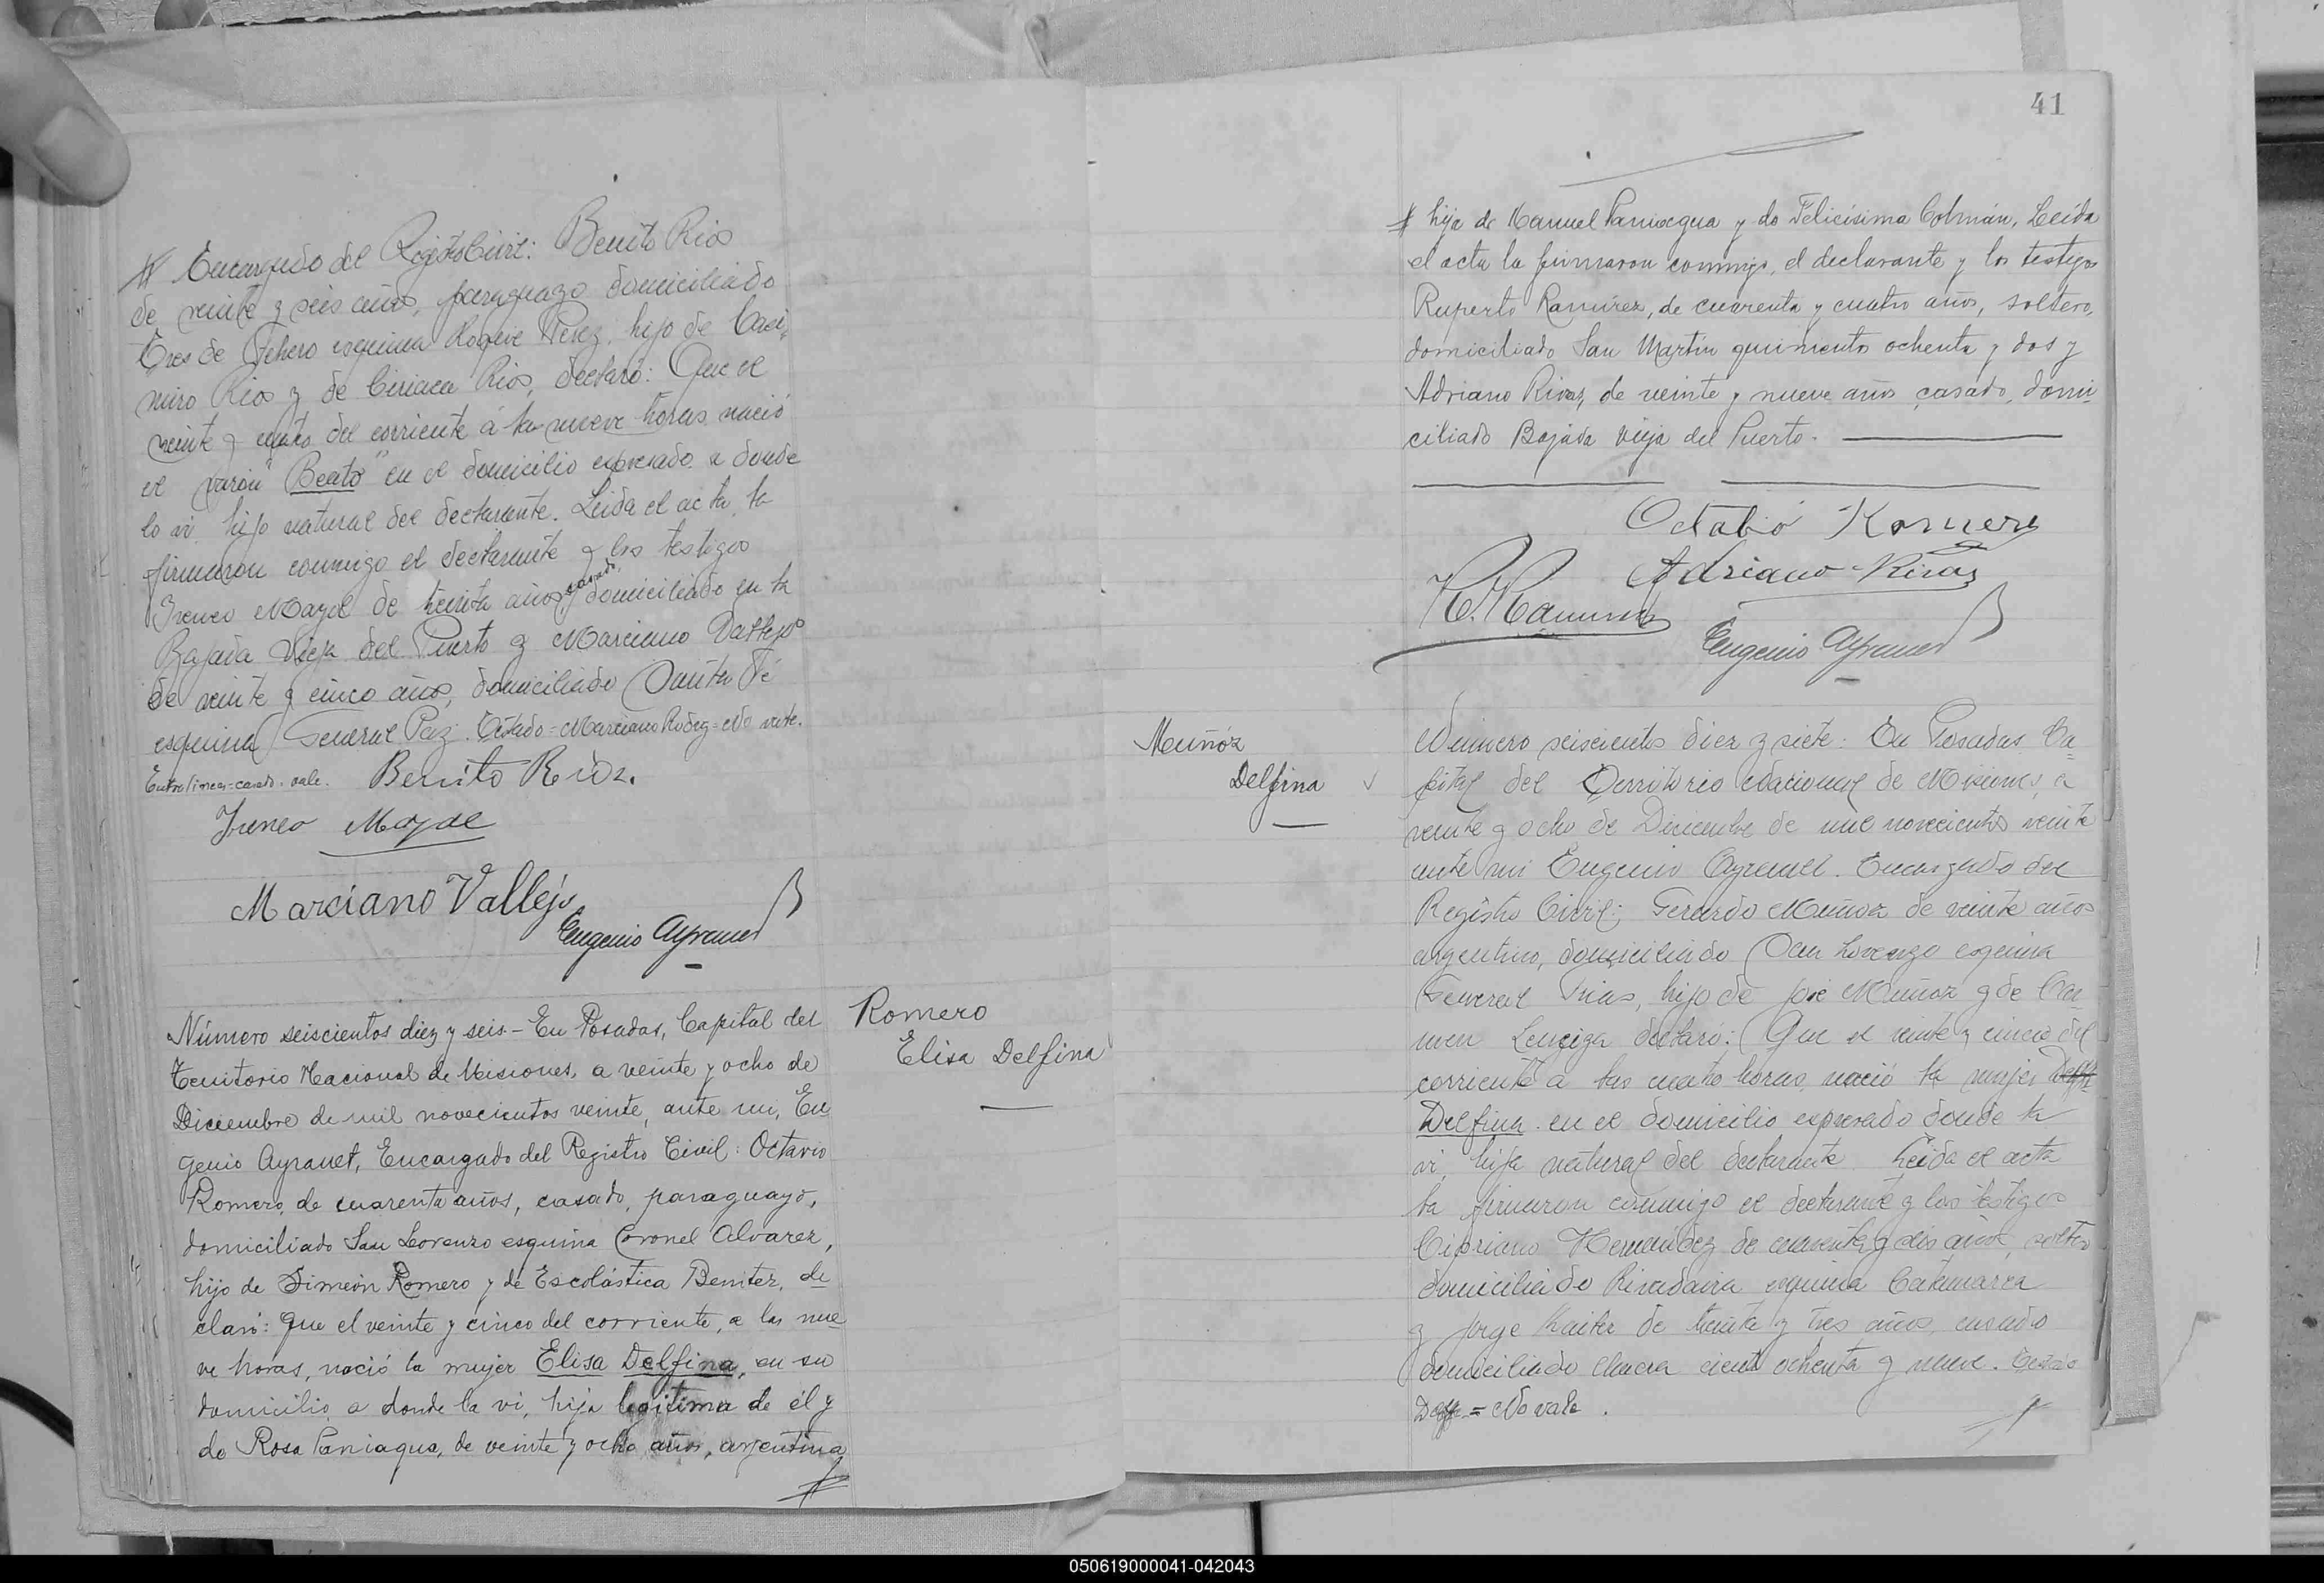 # Encargado del Registro Civil: Benito Rios
de veinte y seis años, paraguayo domiciliado
Tres de Febrero esquina Roque Perez, hijo de Casi-
miro Rios y de Ciriaca Rios, declaró: Que el
veinte y cuatro del corriente á las nueve horas nació
el varón "Beato" en el domicilio expresado a donde
lo vi, hijo natural del declarante. Leida el acta, la
firmaron conmigo el declarante y los testigos
casado,
Ireneo Mayol de treinta años, domiciliado en la
Bajada Vieja del Puerto y Marciano Vallejo
de veinte y cinco años, domiciliado Santa Fé
esquina General Paz. Testado = Marciano Rodrg = No vale.
Entre lineas = casado. vale. Benito Rios.
Ireneo Mayol
Marciano Vallejo
Eugenio Ayranet
Número seiscientos diez y seis.- En Posadas, Capital del
Territorio Nacional de Misiones, a veinte y ocho de
Diciembre de mil novecientos veinte, ante mi, Eu
genio Ayranet, Encargado del Registro Civil: Octavio
Romero, de cuarenta años, casado, paraguayo,
domiciliado San Lorenzo esquina Coronel Alvarez,
hijo de Simeón Romero y de Escolástica Benitez, de
claró: Que el veinte y cinco del corriente, a las nue
ve horas, nació la mujer Elisa Delfina, en su
domicilio, a donde la vi, hija legitima de él y
de Rosa Paniagua, de veinte y ocho años, argentina
#
Romero
Elisa Delfina
41
# hija de Manuel Paniagua y de Felicísima Colmán, Leída
el acta la firmaron conmigo, el declarante y los testigos
Ruperto Ramírez, de cuarenta y cuatro años, soltero,
domiciliado San Martín quinientos ochenta y dos y
Adriano Rivas, de veinte y nueve años casado, domi-
ciliado Bajada vieja del Puerto.
Octabio Romero
Adriano Rivas
R. Ramirez
Eugenio Ayranet
Muñóz
Delfina
Número seiscientos diez y siete: En Posadas Ca-
pital del Territorio Nacional de Misiones, a
veinte y ocho de Diciembre de mil novecientos veinte
ante mi Eugenio Ayranet. Encargado del
Registro Civil: Gerardo Muñoz de veinte años
argentino, domiciliado San Lorenzo esquina
General Frias, hijo de José Muñoz y de Car
men declaró: Que el veinte y cinco del
corriente a las cuatro horas, nació la mujer
Delfina en el domicilio expresado donde la
vi, hija natural del declarante Leida el acta
la firmaron conmigo el declarante y los testigos
Cipriano Hernández de cuarenta y seis años, soltero
domiciliado Rivadavia esquina Catamarca
y Jorge de treinta y tres años, casado
domiciliado chacra ciento ochenta y nueve. Testado
= No vale.
050619000041-042043